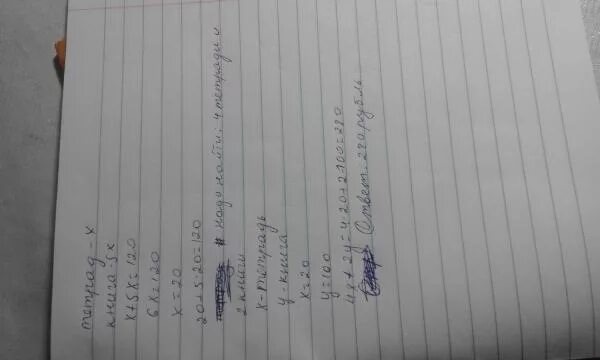 тетрад - x
книга - 5x
x + 5x = 120
6x = 120
x = 20
20 + 5 · 20 = 120
Надо найти: 4 тетради и
2 книги
x - тетрадь
y - книга
x = 20
y = 100
4x + 2y = 4 · 20 + 2 · 100 = 280
Ответ: 280 рубль.